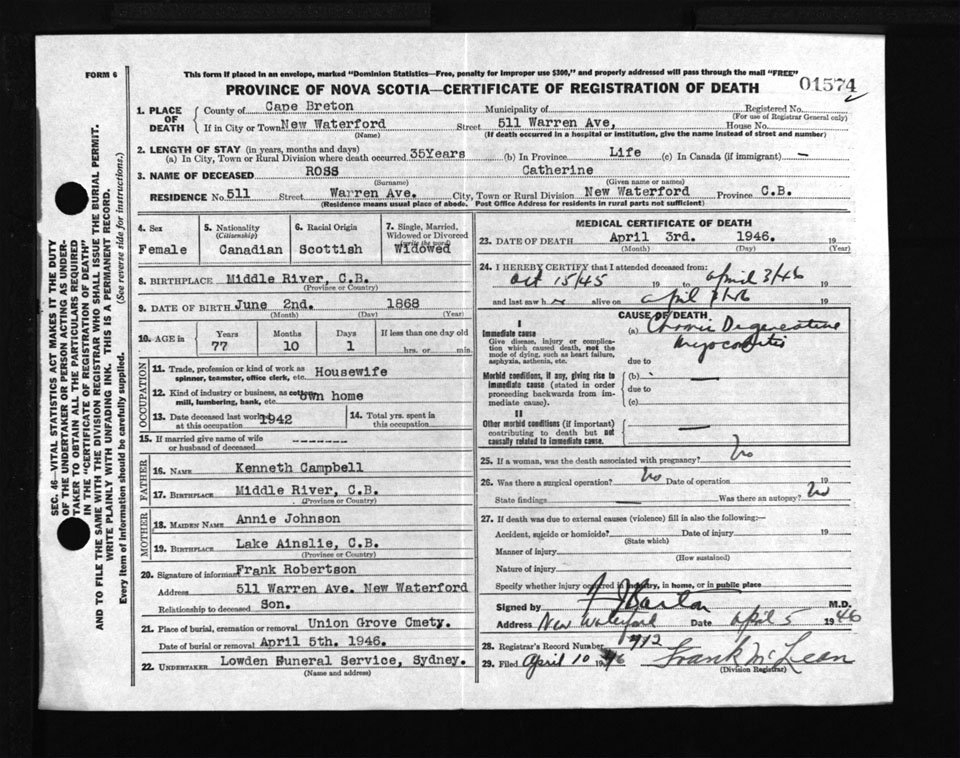 FORM 6
This form if placed in an envelope, marked "Dominion Statistics—Free, penalty for improper use $300," and properly addressed will pass through the mail "FREE"
PROVINCE OF NOVA SCOTIA—CERTIFICATE OF REGISTRATION OF DEATH
01574
1. PLACE OF DEATH
County of Cape Breton Municipality of Registered No.
(For use of Registrar General only)
If in City or Town New Waterford Street 511 Warren Ave, House No.
(Name) (If death occurred in a hospital or institution, give the name instead of street and number)
2. LENGTH OF STAY (in years, months and days)
(a) In City, Town or Rural Division where death occurred 35Years (b) In Province Life (c) In Canada (if immigrant) —
3. NAME OF DECEASED ROSS Catherine
(Surname) (Given name or names)
RESIDENCE No. 511 Street Warren Ave. City, Town or Rural Division New Waterford Province C.B.
(Residence means usual place of abode. Post Office Address for residents in rural parts not sufficient)
4. Sex
Female
5. Nationality
(Citizenship)
Canadian
6. Racial Origin
Scottish
7. Single, Married,
Widowed or Divorced
(write the word)
Widowed
8. BIRTHPLACE Middle River, C.B.
(Province or Country)
9. DATE OF BIRTH June 2nd. 1868
(Month) (Day) (Year)
10. AGE in
Years Months Days If less than one day old
77 10 1 hrs. or min.
OCCUPATION
11. Trade, profession or kind of work as
spinner, teamster, office clerk, etc. Housewife
12. Kind of industry or business, as cotton
mill, lumbering, bank, etc. own home
13. Date deceased last worked
at this occupation 1942
14. Total yrs. spent in
this occupation
15. If married give name of wife
or husband of deceased -------
FATHER
16. NAME Kenneth Campbell
17. BIRTHPLACE Middle River, C.B.
(Province or Country)
MOTHER
18. MAIDEN NAME Annie Johnson
19. BIRTHPLACE Lake Ainslie, C.B.
(Province or Country)
20. Signature of informant Frank Robertson
Address 511 Warren Ave. New Waterford
Relationship to deceased Son.
21. Place of burial, cremation or removal Union Grove Cmety.
Date of burial or removal April 5th. 1946.
22. UNDERTAKER Lowden Funeral Service, Sydney.
(Name and address)
MEDICAL CERTIFICATE OF DEATH
23. DATE OF DEATH April 3rd. 1946. 19
(Month) (Day) (Year)
24. I HEREBY CERTIFY that I attended deceased from:
Oct 15/45 19 to April 3/46
and last saw h er alive on April 19
CAUSE OF DEATH
I
Immediate cause
Give disease, injury or complica-
tion which caused death, not the
mode of dying, such as heart failure,
asphyxia, asthenia, etc.
(a) Chronic Degenerative
Myocarditis
due to
Morbid conditions, if any, giving rise to
immediate cause (stated in order
proceeding backwards from im-
mediate cause).
(b) —
due to
(c)
II
Other morbid conditions (if important)
contributing to death but not
causally related to immediate cause.
—
25. If a woman, was the death associated with pregnancy? No
26. Was there a surgical operation? No Date of operation 19
State findings — Was there an autopsy? No
27. If death was due to external causes (violence) fill in also the following:—
Accident, suicide or homicide? Date of injury 19
(State which)
Manner of injury
(How sustained)
Nature of injury
Specify whether injury occurred in industry, in home, or in public place
Signed by M.D.
Address New Waterford Date April 5 1946
28. Registrar's Record Number 412
29. Filed April 10 1946 Frank McLean
(Division Registrar)
SEC. 46—VITAL STATISTICS ACT MAKES IT THE DUTY
OF THE UNDERTAKER OR PERSON ACTING AS UNDER-
TAKER TO OBTAIN ALL THE PARTICULARS REQUIRED
IN THE "CERTIFICATE OF REGISTRATION OF DEATH"
AND TO FILE THE SAME WITH THE DIVISION REGISTRAR WHO SHALL ISSUE THE BURIAL PERMIT.
WRITE PLAINLY WITH UNFADING INK. THIS IS A PERMANENT RECORD.
Every item of information should be carefully supplied. (See reverse side for instructions.)